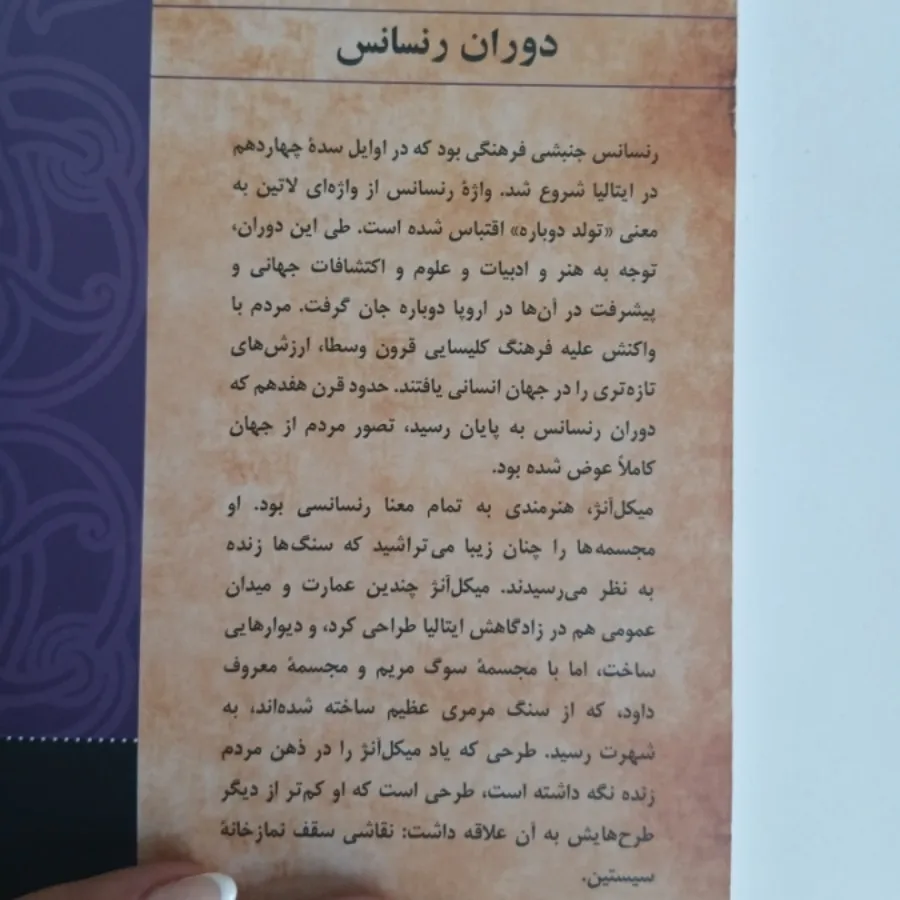 دوران رنسانس
رنسانس جنبشی فرهنگی بود که در اوایل سدهٔ چهاردهم
در ایتالیا شروع شد. واژهٔ رنسانس از واژه‌ای لاتین به
معنی «تولد دوباره» اقتباس شده است. طی این دوران،
توجه به هنر و ادبیات و علوم و اکتشافات جهانی و
پیشرفت در آن‌ها در اروپا دوباره جان گرفت. مردم با
واکنش علیه فرهنگ کلیسایی قرون وسطا، ارزش‌های
تازه‌تری را در جهان انسانی یافتند. حدود قرن هفدهم که
دوران رنسانس به پایان رسید، تصور مردم از جهان
کاملاً عوض شده بود.
میکل‌آنژ، هنرمندی به تمام معنا رنسانسی بود. او
مجسمه‌ها را چنان زیبا می‌تراشید که سنگ‌ها زنده
به نظر می‌رسیدند. میکل‌آنژ چندین عمارت و میدان
عمومی هم در زادگاهش ایتالیا طراحی کرد، و دیوارهایی
ساخت، اما با مجسمهٔ سوگ مریم و مجسمهٔ معروف
داود، که از سنگ مرمری عظیم ساخته شده‌اند، به
شهرت رسید. طرحی که یاد میکل‌آنژ را در ذهن مردم
زنده نگه داشته است، طرحی است که او کم‌تر از دیگر
طرح‌هایش به آن علاقه داشت: نقاشی سقف نمازخانهٔ
سیستین.